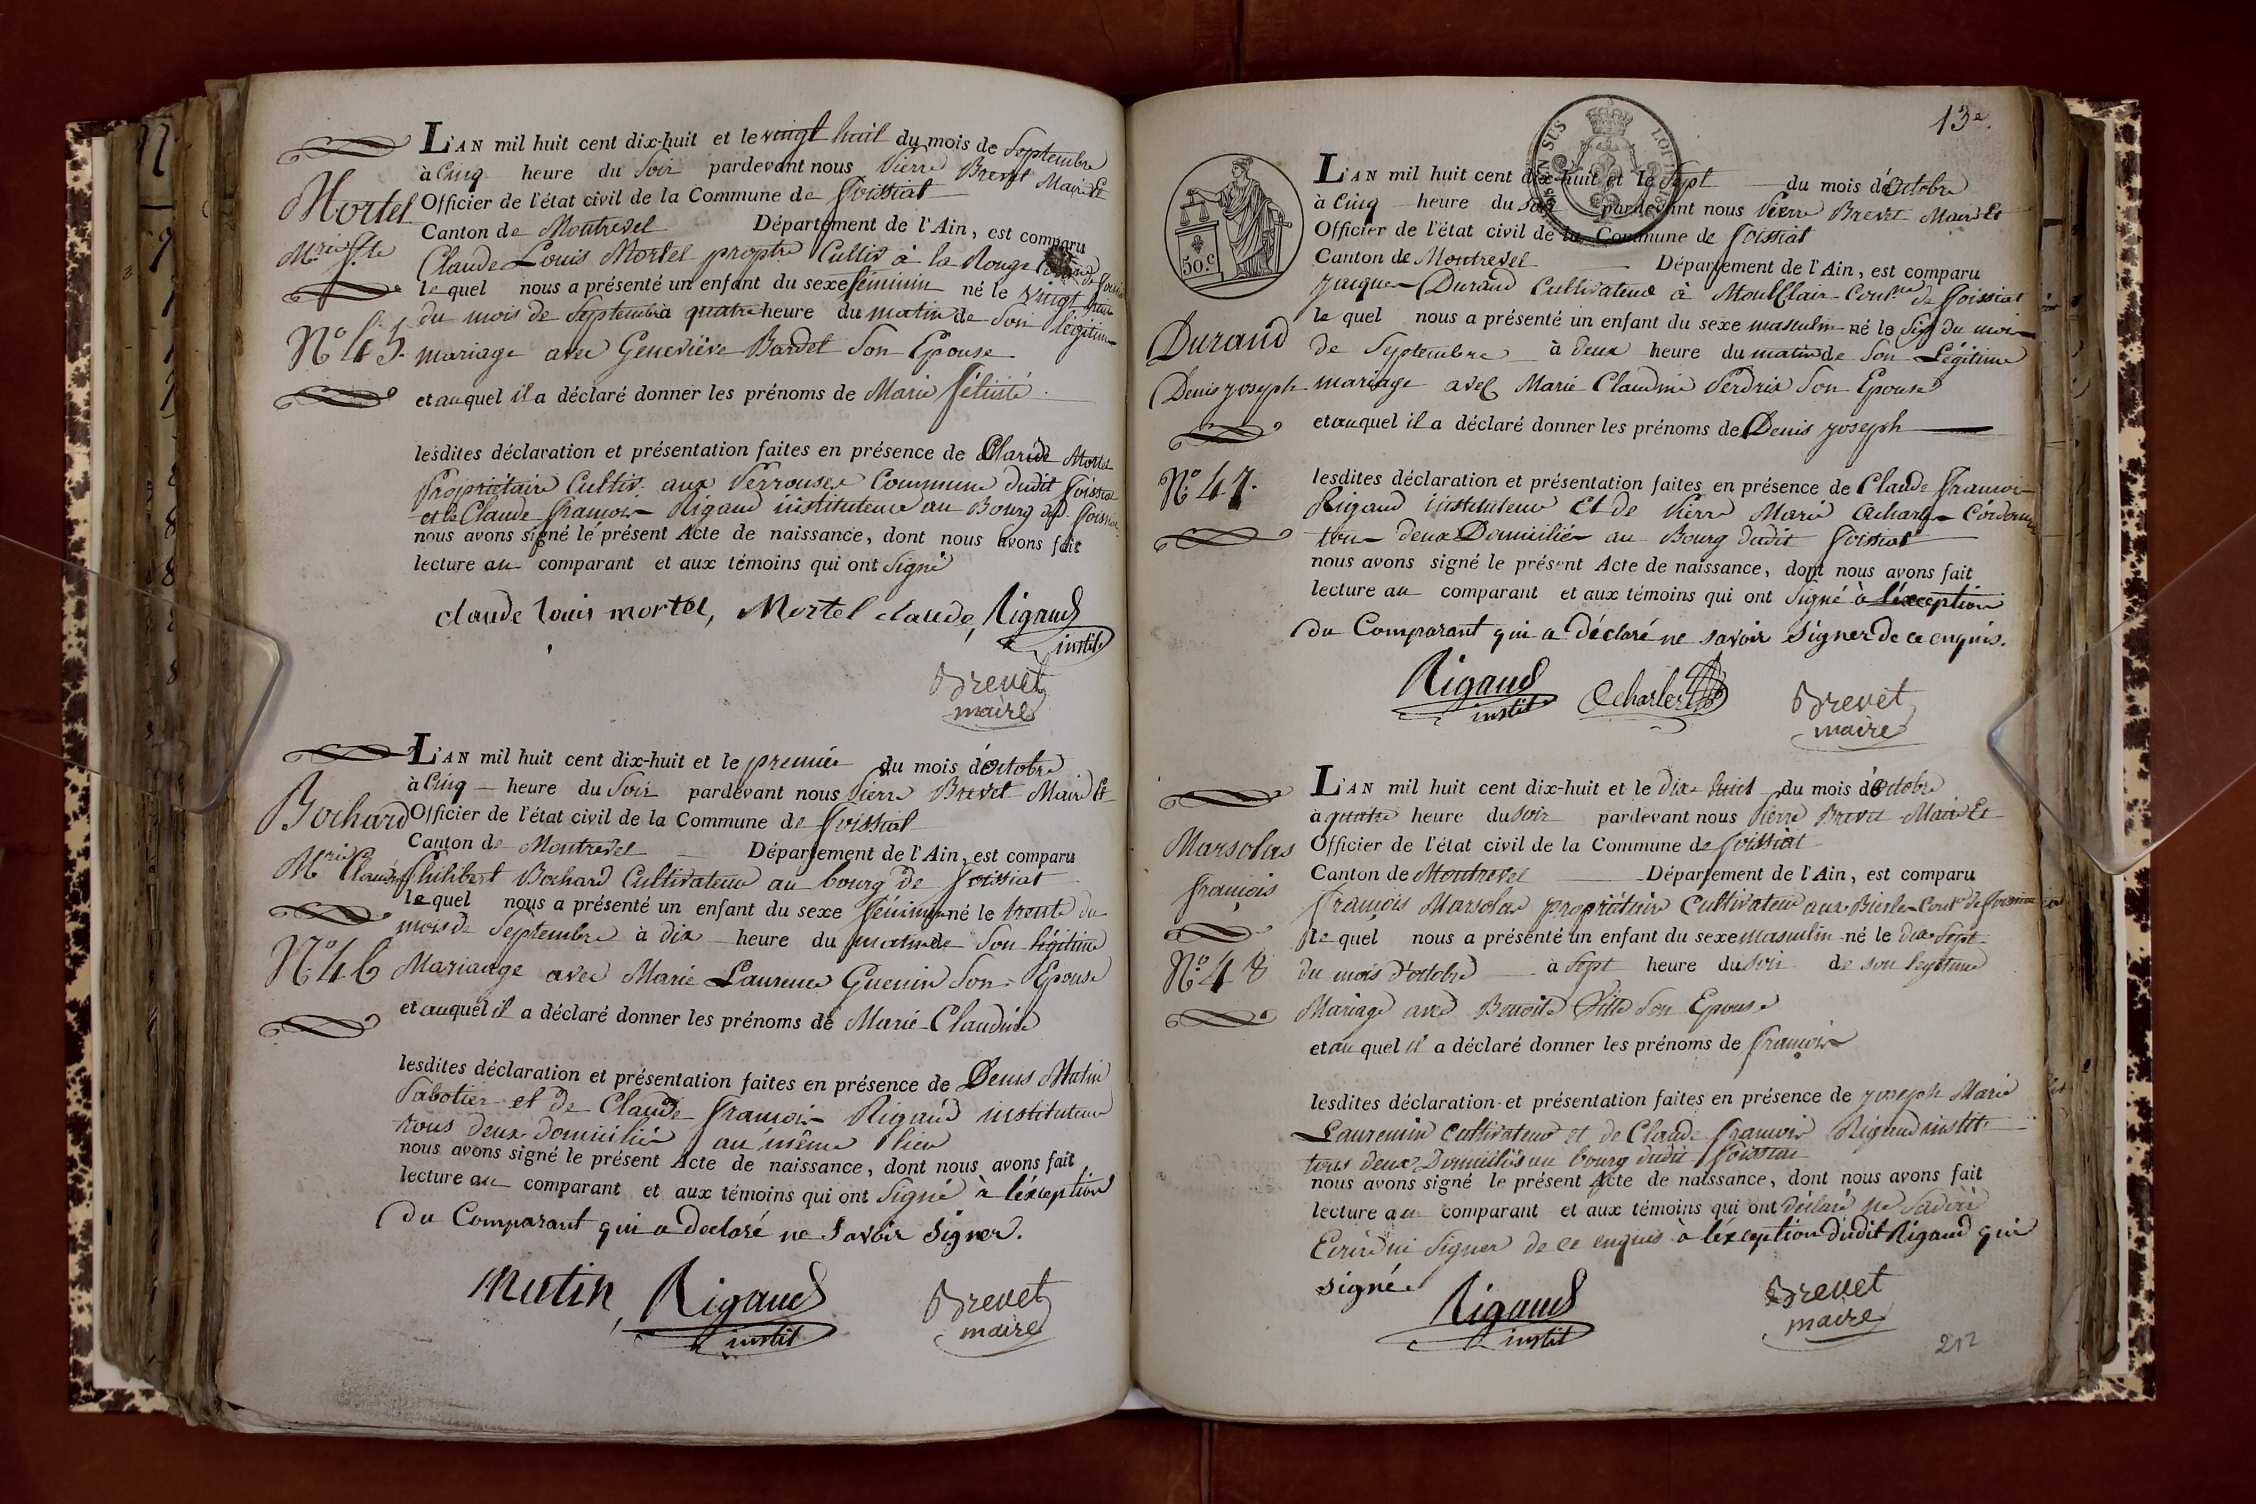 L'AN mil huit cent dix-huit et le vingt huit du mois de Septembre
à Cinq heure du Soir pardevant nous Pierre Brevet Maire Et
Mortel
Officier de l'état civil de la Commune de foissiat
Canton de Montrevel Département de l'Ain, est comparu
M.rie f.te
Claude Louis Mortel propre Cultiv à la Rouge
le quel nous a présenté un enfant du sexe féminin né le vingt huit
du mois de Septembre à quatre heure du matin de Son légitime
N.º 45.
mariage avec Geneviève Bardet Son Epouse
et auquel il a déclaré donner les prénoms de Marie félicité
lesdites déclaration et présentation faites en présence de Claude Mortel
Propriétaire Cultiv. aux Perrouses Commune dudit foissiat
et de Claude françois Rigaud instituteur au Bourg foissiat
nous avons signé le présent Acte de naissance, dont nous avons fait
lecture au comparant et aux témoins qui ont Signé
claude louis mortel, Mortel claude, Rigaud
instit
Brevet
maire
L'AN mil huit cent dix-huit et le premier du mois d'Octobre
à Cinq heure du Soir pardevant nous Pierre Brevet Maire Et
Bochard
Officier de l'état civil de la Commune de foissiat
Canton de Montrevel Département de l'Ain, est comparu
M.rie Claudine
Philibert Bochard Cultivateur au bourg de foissiat
le quel nous a présenté un enfant du sexe féminin né le trente du
mois de Septembre à dix heure du matin de Son légitime
N.º 46
Mariange avec Marie Laurence Guenin Son Epouse
et auquel il a déclaré donner les prénoms de Marie-Claudine
lesdites déclaration et présentation faites en présence de Denis Matin
Sabotier et de Claude françois Rigaud instituteur
tous deux domicilié au même lieu
nous avons signé le présent Acte de naissance, dont nous avons fait
lecture au comparant et aux témoins qui ont Signé à l'éxception
du Comparant qui a declaré ne Savoir Signer.
Mutin, Rigaud
instit
Brevet
maire
13e.
50.c
L'AN mil huit cent dix-huit et le Sept du mois d'Octobre
à Cinq heure du Soir pardevant nous Pierre Brevet Maire Et
Officier de l'état civil de la Commune de foissiat
Canton de Montrevel Département de l'Ain, est comparu
Jacques Durand Cultivateur à MontClair de foissiat
le quel nous a présenté un enfant du sexe masculin né le Six du mois
Durand
de Septembre à deux heure du matin de Son Légitime
Denis joseph
mariage avec Marie Claudine Perdrix Son Epouse
et auquel il a déclaré donner les prénoms de Denis joseph
N.º 47.
lesdites déclaration et présentation faites en présence de Claude françois
Rigaud instituteur Et de Pierre Marie Acharles Cordonnier
tous deux Domicilié au Bourg dudit foissiat
nous avons signé le présent Acte de naissance, dont nous avons fait
lecture au comparant et aux témoins qui ont Signé à l'éxception
du Comparant qui a déclaré ne savoir signer de ce enquis.
Rigaud
instit
Acharles
Brevet
maire
L'AN mil huit cent dix-huit et le dix huit du mois d'Octobre
à quatre heure du soir pardevant nous Pierre Brevet Maire Et
Marsolas
Officier de l'état civil de la Commune de foissiat
Canton de Montrevel Département de l'Ain, est comparu
françois
françois Marsolas propriétaire Cultivateur aux de foissiat
le quel nous a présenté un enfant du sexe masculin né le dix Sept
N.º 48
du mois d'octobre à Sept heure du soir de son legitime
Mariage avec Benoite Son Epouse
et au quel il a déclaré donner les prénoms de françois
lesdites déclaration et présentation faites en présence de joseph Marie
Laurencin Cultivateur et de Claude françois Rigaud instit
tous deux Domiciliés au bourg dudit foissiat
nous avons signé le présent Acte de naissance, dont nous avons fait
lecture au comparant et aux témoins qui ont déclaré ne Savoir
Ecrire ni Signer de ce enquis à l'éxception dudit Rigaud qui
signé
Rigaud
instit
Brevet
maire
212